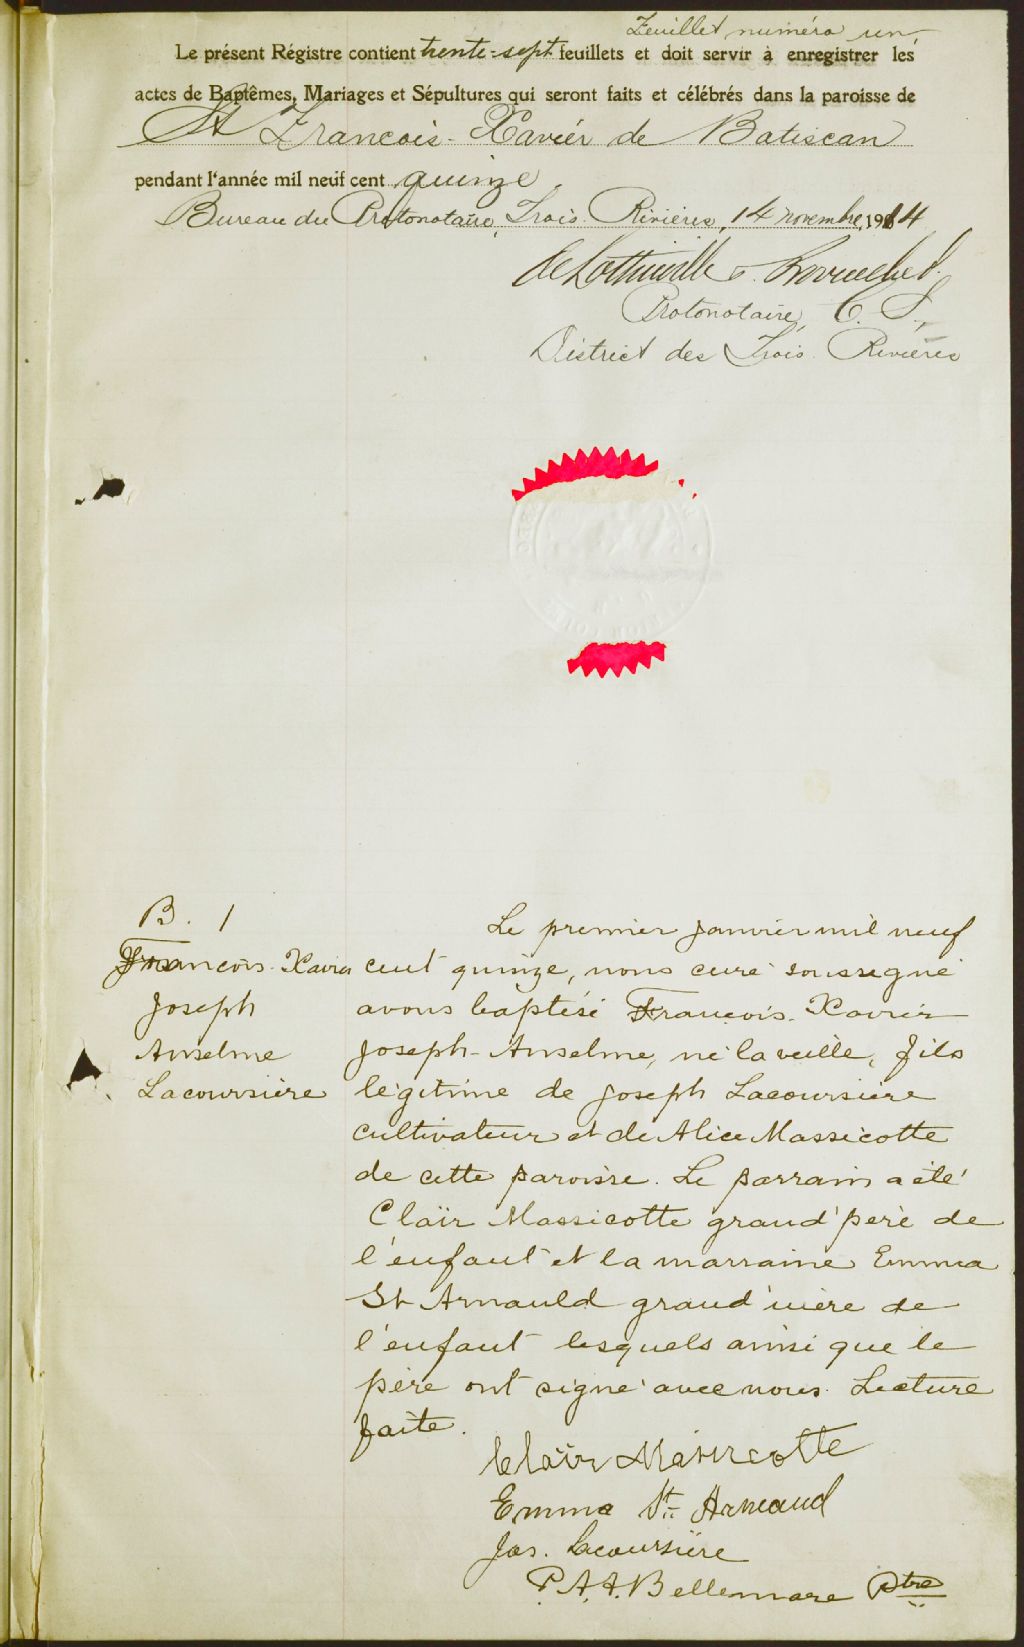 Feuillet numéro un
Le présent Régistre contient trente-sept feuillets et doit servir à enregistrer les
actes de Baptêmes, Mariages et Sépultures qui seront faits et célébrés dans la paroisse de
St Francois-Xavier de Batiscan
pendant l'année mil neuf cent quinze
Bureau du Protonotaire, Trois Rivières, 14 novembre 1914
Protonotaire, C. S.,
District des Trois Rivières
B. 1
François-Xavier
Joseph
Anselme
Lacoursière
Le premier janvier mil neuf
cent quinze, nous curé soussigné
avons baptisé François-Xavier
Joseph-Anselme, né la veille, fils
légitime de Joseph Lacoursière
cultivateur et de Alice Massicotte
de cette paroisse. Le parrain a été
Claïr Massicotte grand'père de
l'enfant et la marraine Emma
St Arnauld grand'mère de
l'enfant lesquels ainsi que le
père ont signé avec nous. Lecture
faite.
Claïr Massicotte
Emma St Arneaud
Jos. Lacoursière
P.A.A. Bellemare Ptre